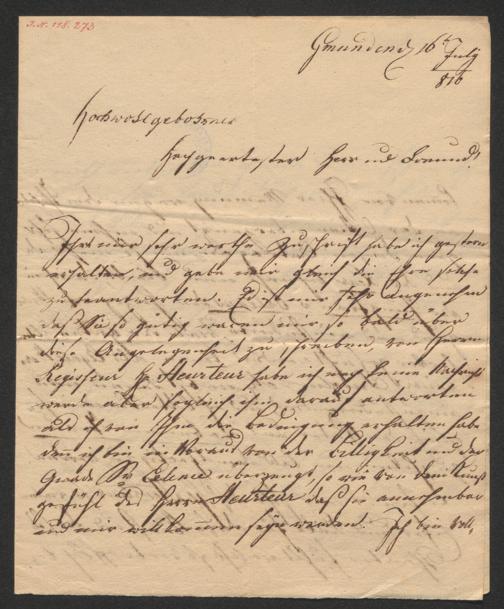 I.N. 118.273
Gmunden d 16t July
816
Hochwohlgebohrner
Hochgeertester Herr und Freund!
Ihre mir sehr werthe Zuschrift habe ich gestern
erhalten, und gebe mir gleich die Ehre solche
zu beantworten. Es ist mir sehr angenehm
daß Sie so gütig waren mir so bald über
diese Angelegenheit zu schreiben, von Herrn
Regisseur Heurteur habe ich noch keine Nachricht
werde aber sogleich ihm darauf antworten
als ich von Ihm die Bedingung erhalten habe
den ich bin im Voraus von der Billigkeit und der
Gnade Sr Exlence überzeugt, so wie von dem Kunst
gefühl des Herrn Heurteur daß sie annehmbar
und mir willkommen seyn werden. Ich bin voll,